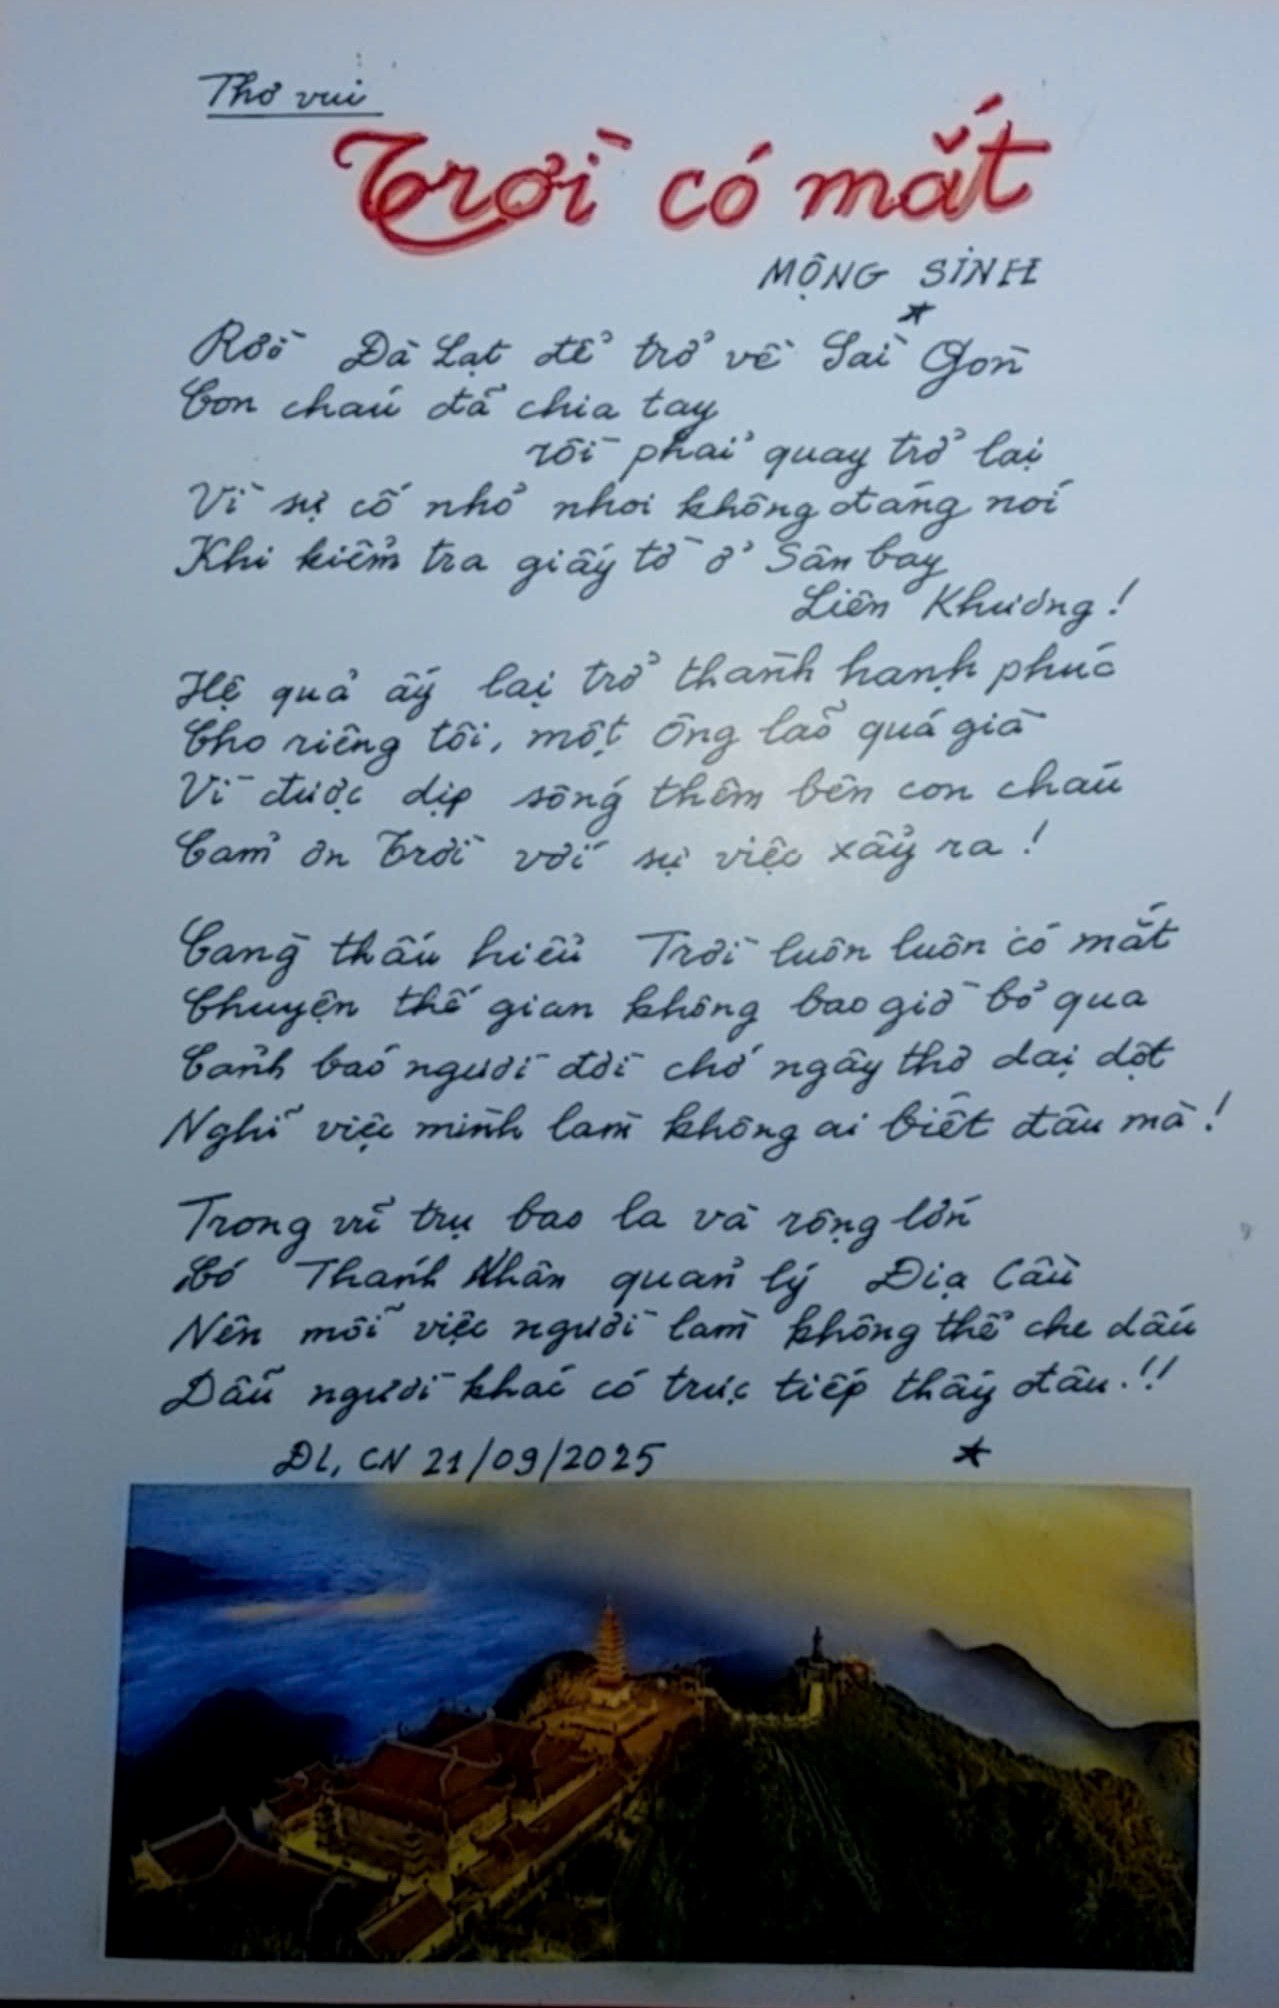 Thơ vui
Trời có mắt
MỘNG SINH
Rời Đà Lạt để trở về Sài Gòn
Con cháu đã chia tay
rồi phải quay trở lại
Vì sự cố nhỏ nhoi không đáng nói
Khi kiểm tra giấy tờ ở Sân bay
Liên Khương!
Hệ quả ấy lại trở thành hạnh phúc
Cho riêng tôi, một ông lão quá già
Vì được dịp sống thêm bên con cháu
Cảm ơn Trời với sự việc xẩy ra!
Càng thấu hiểu Trời luôn luôn có mắt
Chuyện thế gian không bao giờ bỏ qua
Cảnh báo người đời chớ ngây thơ dại dột
Nghĩ việc mình làm không ai biết đâu mà!
Trong vũ trụ bao la và rộng lớn
Có Thánh Nhân quản lý Địa Cầu
Nên mỗi việc người làm không thể che dấu
Dẫu người khác có trực tiếp thấy đâu.!!
ĐL, CN 21/09/2025